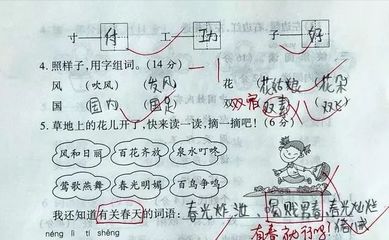 寸 付 工 功 子 好
4. 照样子,用字组词。(14 分) -1
风 (吹风) (发风) 花 (花姑娘) (花朵)
国 (国内) (国足) 双 (双宿双 (双飞)
5. 草地上的花儿开了,快来读一读,摘一摘吧!(6 分)
风和日丽 百花齐放 泉水叮咚
莺歌燕舞 春光明媚 百鸟争鸣
我还知道有关春天的词语: 春光炸泄、 思春、春光灿烂
猪八戒
有春就行吗?
nénɡ lì tí shēnɡ